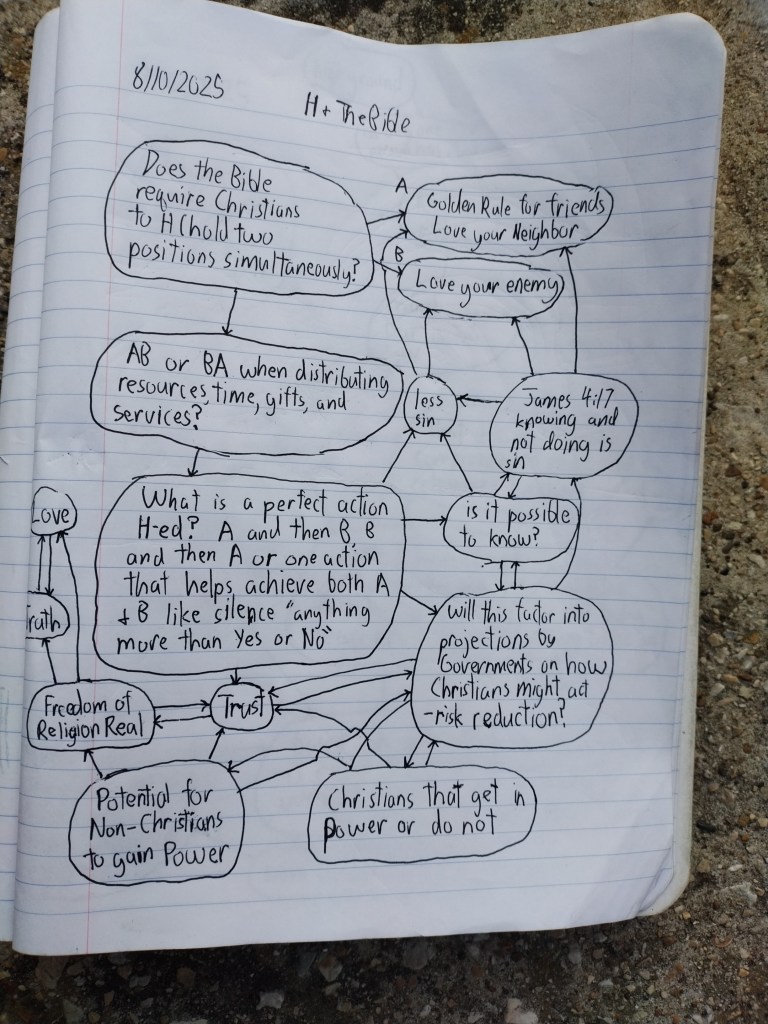 8/10/2025
H + The Bible
Does the Bible
require Christians
to H (hold two
positions simultaneously?
A
Golden Rule for friends
Love your Neighbor
B
Love your enemy
AB or BA when distributing
resources, time, gifts, and
services?
less
sin
James 4:17
knowing and
not doing is
sin
What is a perfect action
H-ed? A and then B, B
and then A or one action
that helps achieve both A
+ B like silence "anything
more than Yes or No"
is it possible
to know?
Love
ruth
Will this factor into
projections by
Governments on how
Christians might act
-risk reduction?
Freedom of
Religion Real
Trust
Potential for
Non-Christians
to gain Power
Christians that get in
power or do not